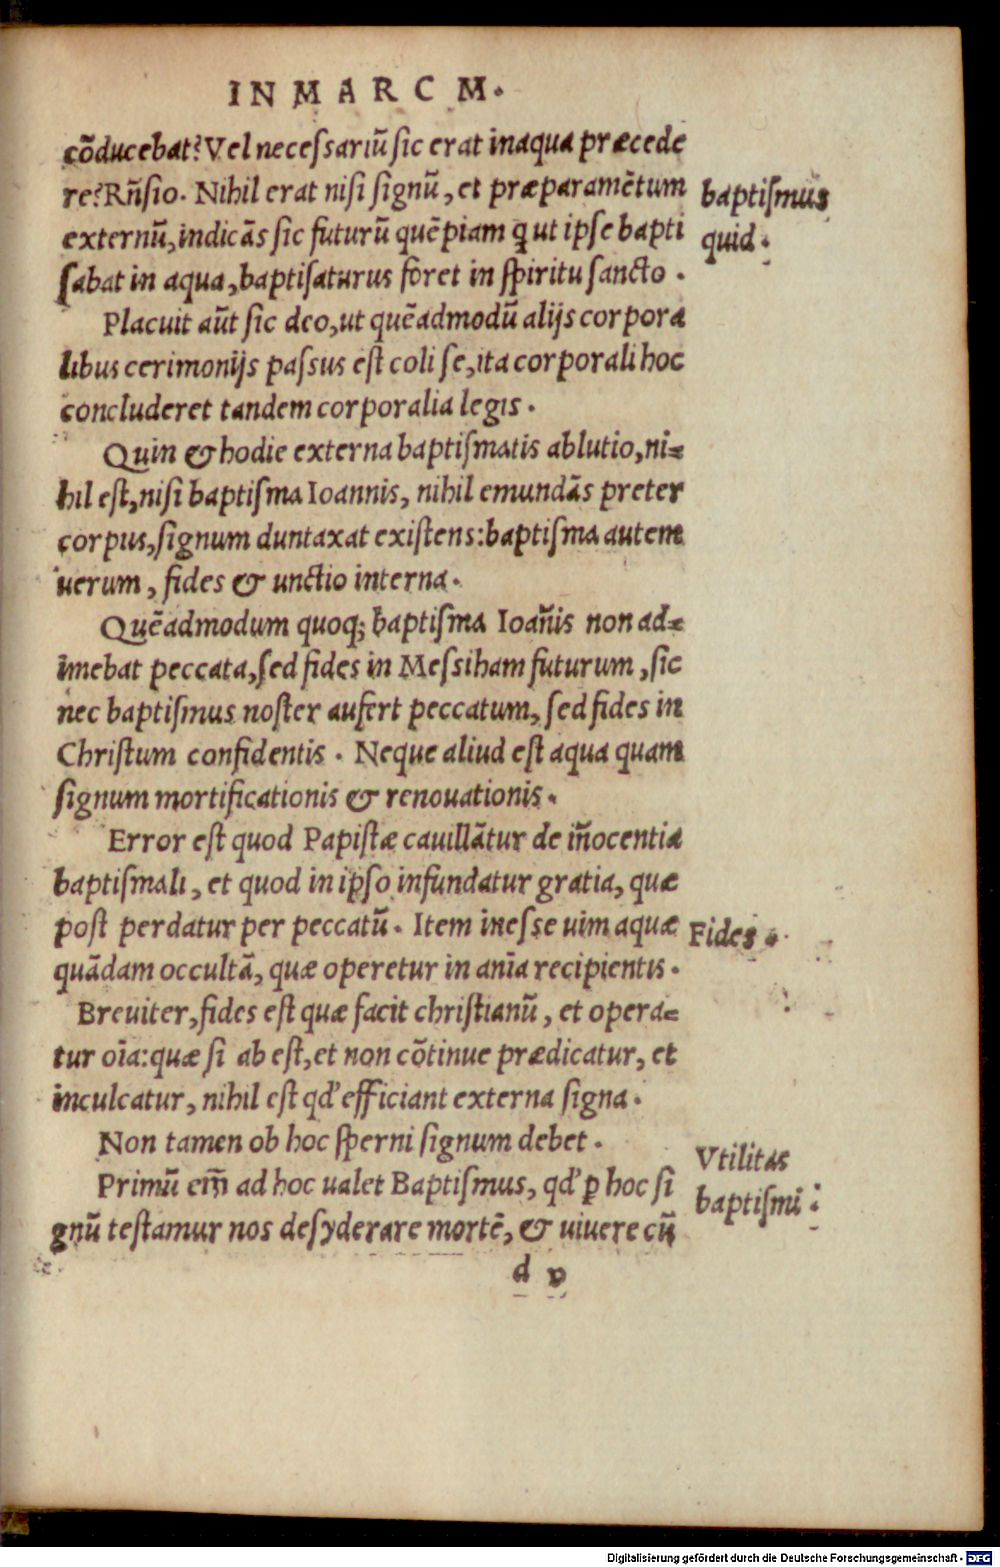 IN MARCM.
cõducebat? Vel necessariũ sic erat in aqua præcede
re? Rñsio. Nihil erat nisi signũ, et præparamẽtum
baptismus
externũ, indicãs sic futurũ quẽpiam q ut ipse bapti
quid.
sabat in aqua, baptisaturus foret in spiritu sancto.
Placuit aũt sic deo, ut quẽadmodũ alijs corpora
libus cerimonijs passus est coli se, ita corporali hoc
concluderet tandem corporalia legis.
Quin & hodie externa baptismatis ablutio, ni-
hil est, nisi baptisma Ioannis, nihil emundãs preter
corpus, signum duntaxat existens: baptisma autem
uerum, fides & unctio interna.
Quẽadmodum quoq; baptisma Ioañis non ad-
imebat peccata, sed fides in Messiham futurum, sic
nec baptismus noster aufert peccatum, sed fides in
Christum confidentis. Neque aliud est aqua quam
signum mortificationis & renouationis.
Error est quod Papistæ cauillãtur de iñocentia
baptismali, et quod in ipso infundatur gratia, quæ
post perdatur per peccatũ. Item inesse uim aquæ
Fides.
quãdam occultã, quæ operetur in anĩa recipientis.
Breuiter, fides est quæ facit christianũ, et opera-
tur oĩa: quæ si ab est, et non cõtinue prædicatur, et
inculcatur, nihil est qd' efficiant externa signa.
Non tamen ob hoc sperni signum debet.
Vtilitas
Primũ em̃ ad hoc ualet Baptismus, qd' ꝑ hoc si
baptismi.
gnũ testamur nos desyderare mortẽ, & uiuere cũ
d v
Digitalisierung gefördert durch die Deutsche Forschungsgemeinschaft - DFG